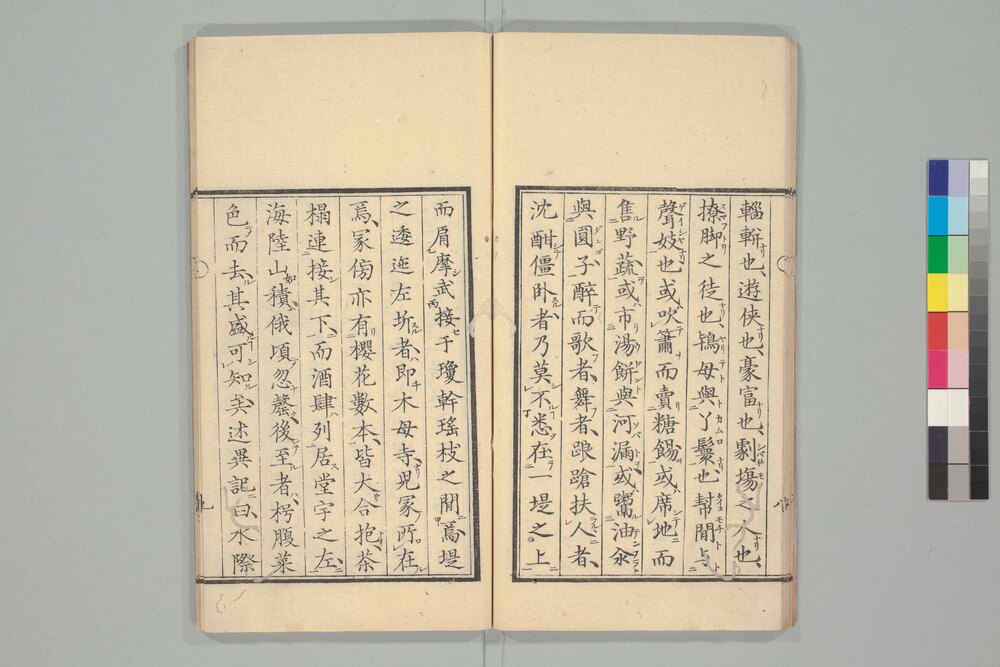 輜軿也、遊俠也、豪富也、劇塲之人也、
撩脚之徒也、鴇母與丫鬟也幇閒与
聲妓也或吹簫而賣糖餳或席地而
售野蔬或市湯餅與河漏或鬻油汆
與圓子醉而歌者、舞者、踉蹌扶人者、
沈酣僵臥者乃莫不悉在一堤之上
而肩摩武接于瓊幹瑤枝之閒焉堤
之逶迤左折者即木母寺皃冢所在
焉、冢傍亦有櫻花數本、皆大合抱、茶
榻連接其下、而酒肆列居堂宇之左、
海陸山積、俄頃忽罄、後至者、枵腹菜
色而去、其盛可知矣述異記曰水際